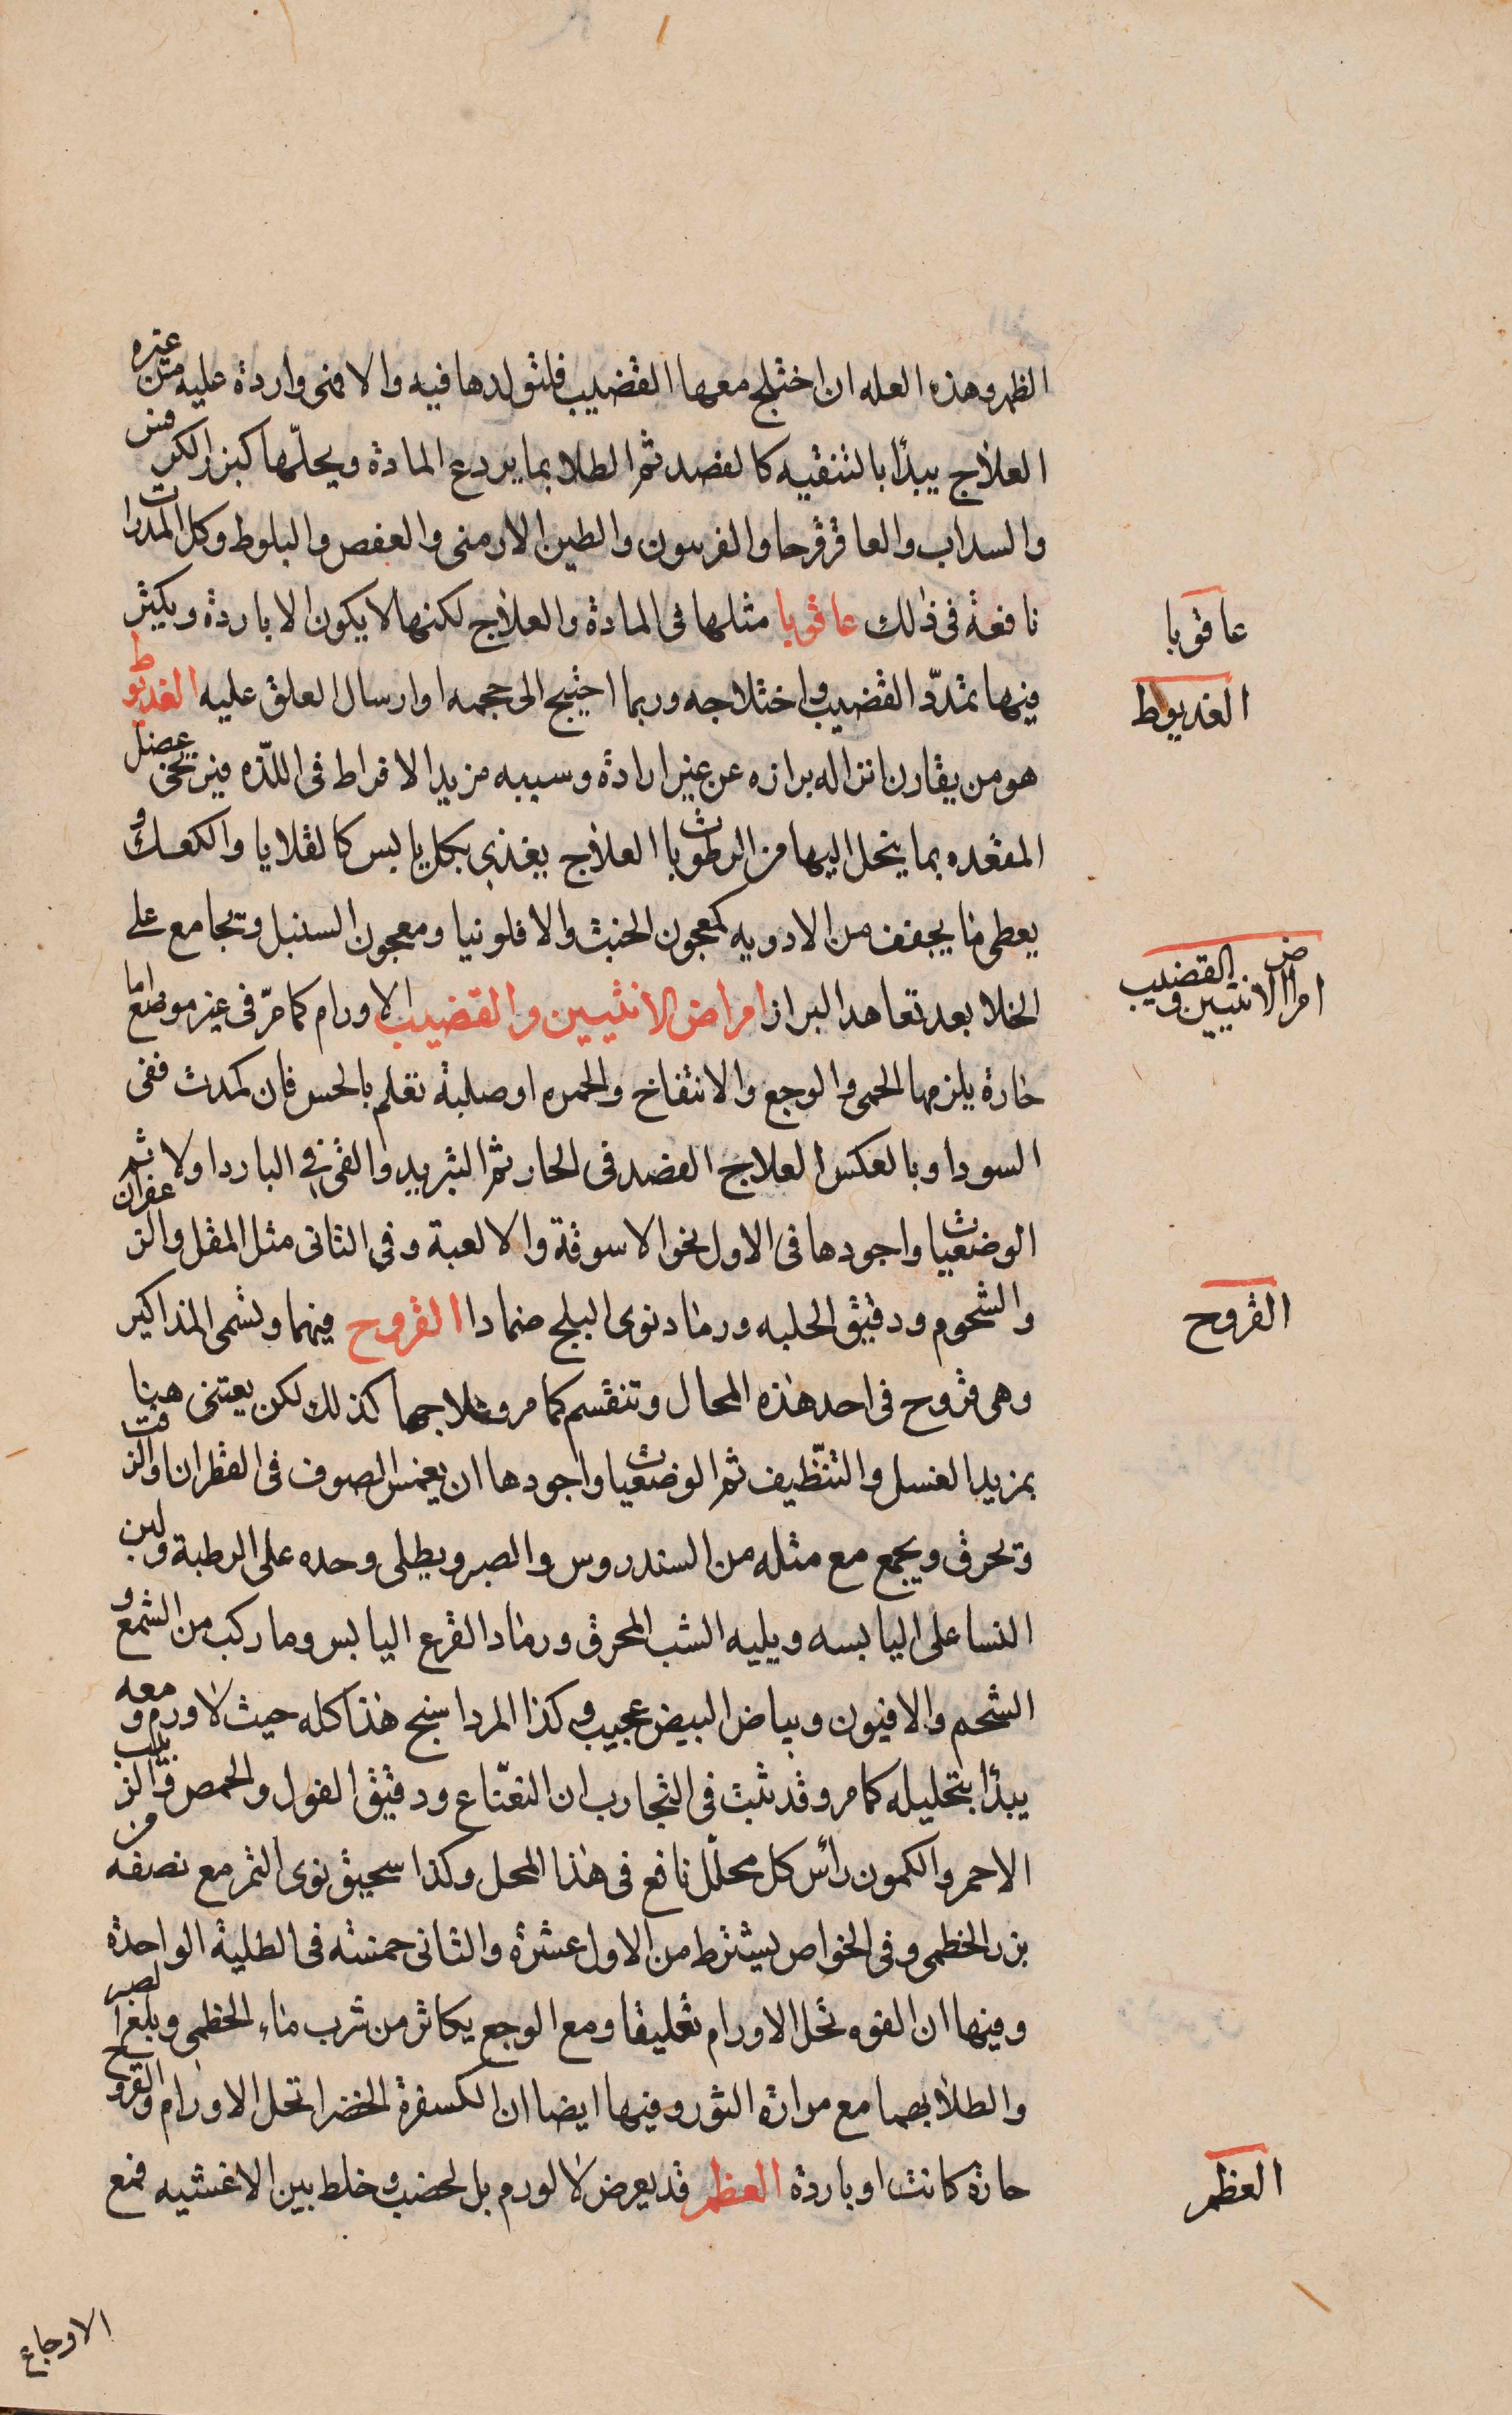 الظهر وهذه العله ان اختلج معها القضيب فلتولدها فيه والا فمنى واردة عليه من غيره
العلاج يبدأ بالتنقيه كالفصد ثم الطلا بما يردع المادة ويحلّها كبزر الكرفس
والسداب والعاقرقرحا والفربيون والطين الارمنى والعفص والبلوط وكل المدرات
نافعة فى ذلك عاقويا مثلها فى المادة والعلاج لكنها لا يكون الا باردة ويكثر
عاقويا
فيها تمدّد القضيب واختلاجه وربما احتيج الى حجمه او ارسال العلق عليه الغديوط
الغديوط
هو من يقارن انزاله برازه عن غير ارادة وسببه مزيد الافراط فى اللذّه فيرتخى عضل
المقعده بما ينحل اليها من الرطوبات العلاج يغذى بكل يابس كالقلايا والكعك و
يعطى ما يجفف من الادويه كمعجون الخبث والافلونيا ومعجون السنبل وتجامع على
الخلا بعد تعاهد البراز امراض الانثيين والقضيب الاورام كما مرّ فى غير موضع اما
امراض الانثيين والقضيب
حارة يلزمها الحمى والوجع والانتفاخ والحمره او صلبة تعلم بالحس فان كمدت ففى
السودا وبالعكس العلاج الفصد فى الحار ثم التبريد والقى فى البارد اولا ثم
الوضعيات واجودها فى الاول نحو الاسوقة والالعبة وفى الثانى مثل المقل والزعفران
والشحوم ودقيق الحلبه ورماد نوى البلح ضمادا القروح فيهما وتسمى المذاكير
القروح
وهى قروح فى احد هذه المحال وتنقسم كما مر وعلاجها كذلك لكن يعتنى هنا
بمزيد الغسل والتنّظيف ثم الوضعيات واجودها ان يغمس الصوف فى القطران والزفت
وتحرق ويجمع مع مثله من السندروس والصبر ويطلى وحده على الرطبة ولبن
النسا على اليابسه ويليه الشب المحرق ورماد القرع اليابس وما ركب من الشمع و
الشحم والافيون وبياض البيض عجيب وكذا المرداسنج هذا كله حيث لا ورم ومعه
يبدأ بتحليله كما مر وقد ثبت فى التجارب ان النعّناع ودقيق الفول والحمص والزبيب
الاحمر والكمون رأس كل محلّل نافع فى هذا المحل وكذا سحيق نوى التمر مع نصفه من
بزر الخطمى وفى الخواص يشترط من الاول عشرة والثانى خمسة فى الطلية الواحدة
وفيها ان الفوه تحل الاورام تعليقا ومع الوجع يكاثر من شرب ماء الخطمى وبلع الصبر
والطلا بهما مع مرارة الثور وفيها ايضا ان الكسفرة الخضرا تحل الاورام والقروح
حارة كانت او باردة العظم قد يعرض لا لورم بل لخصب وخلط بين الاغشيه فمع
العظم
الاوجاع